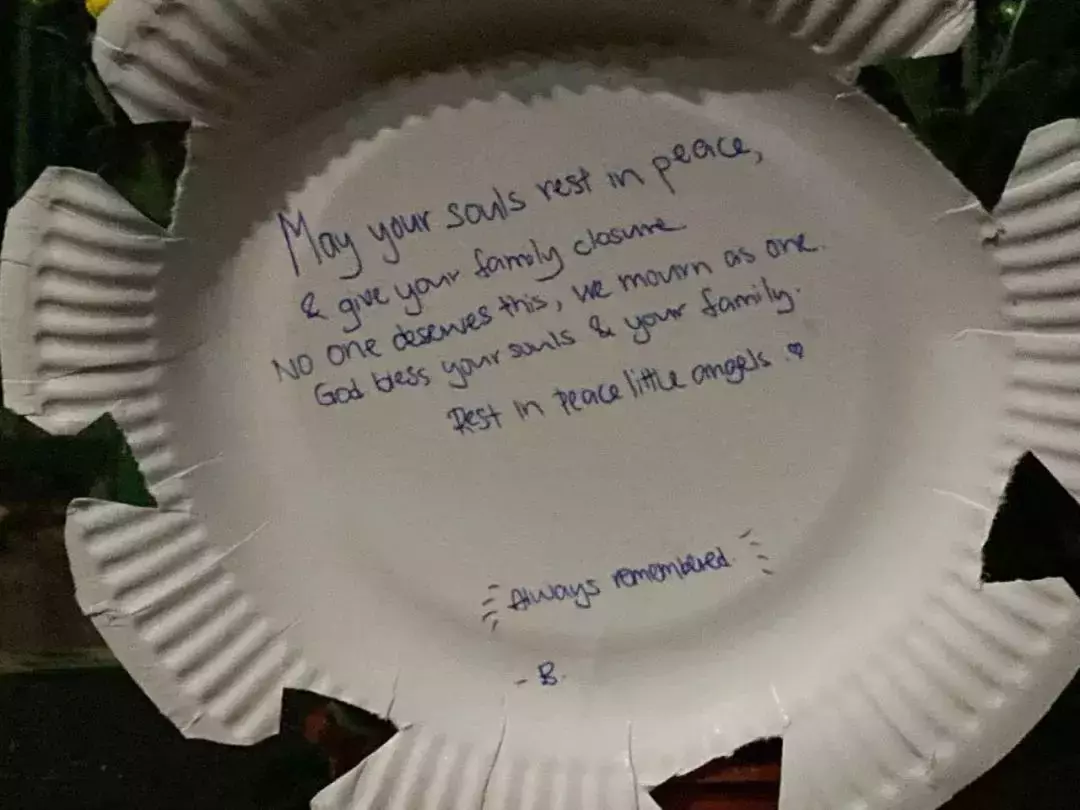 May your souls rest in peace,
& give your family closure
No one deserves this, we mourn as one.
God bless your souls & your family.
Rest in Peace little angels ♡
Always remembered.
- B.